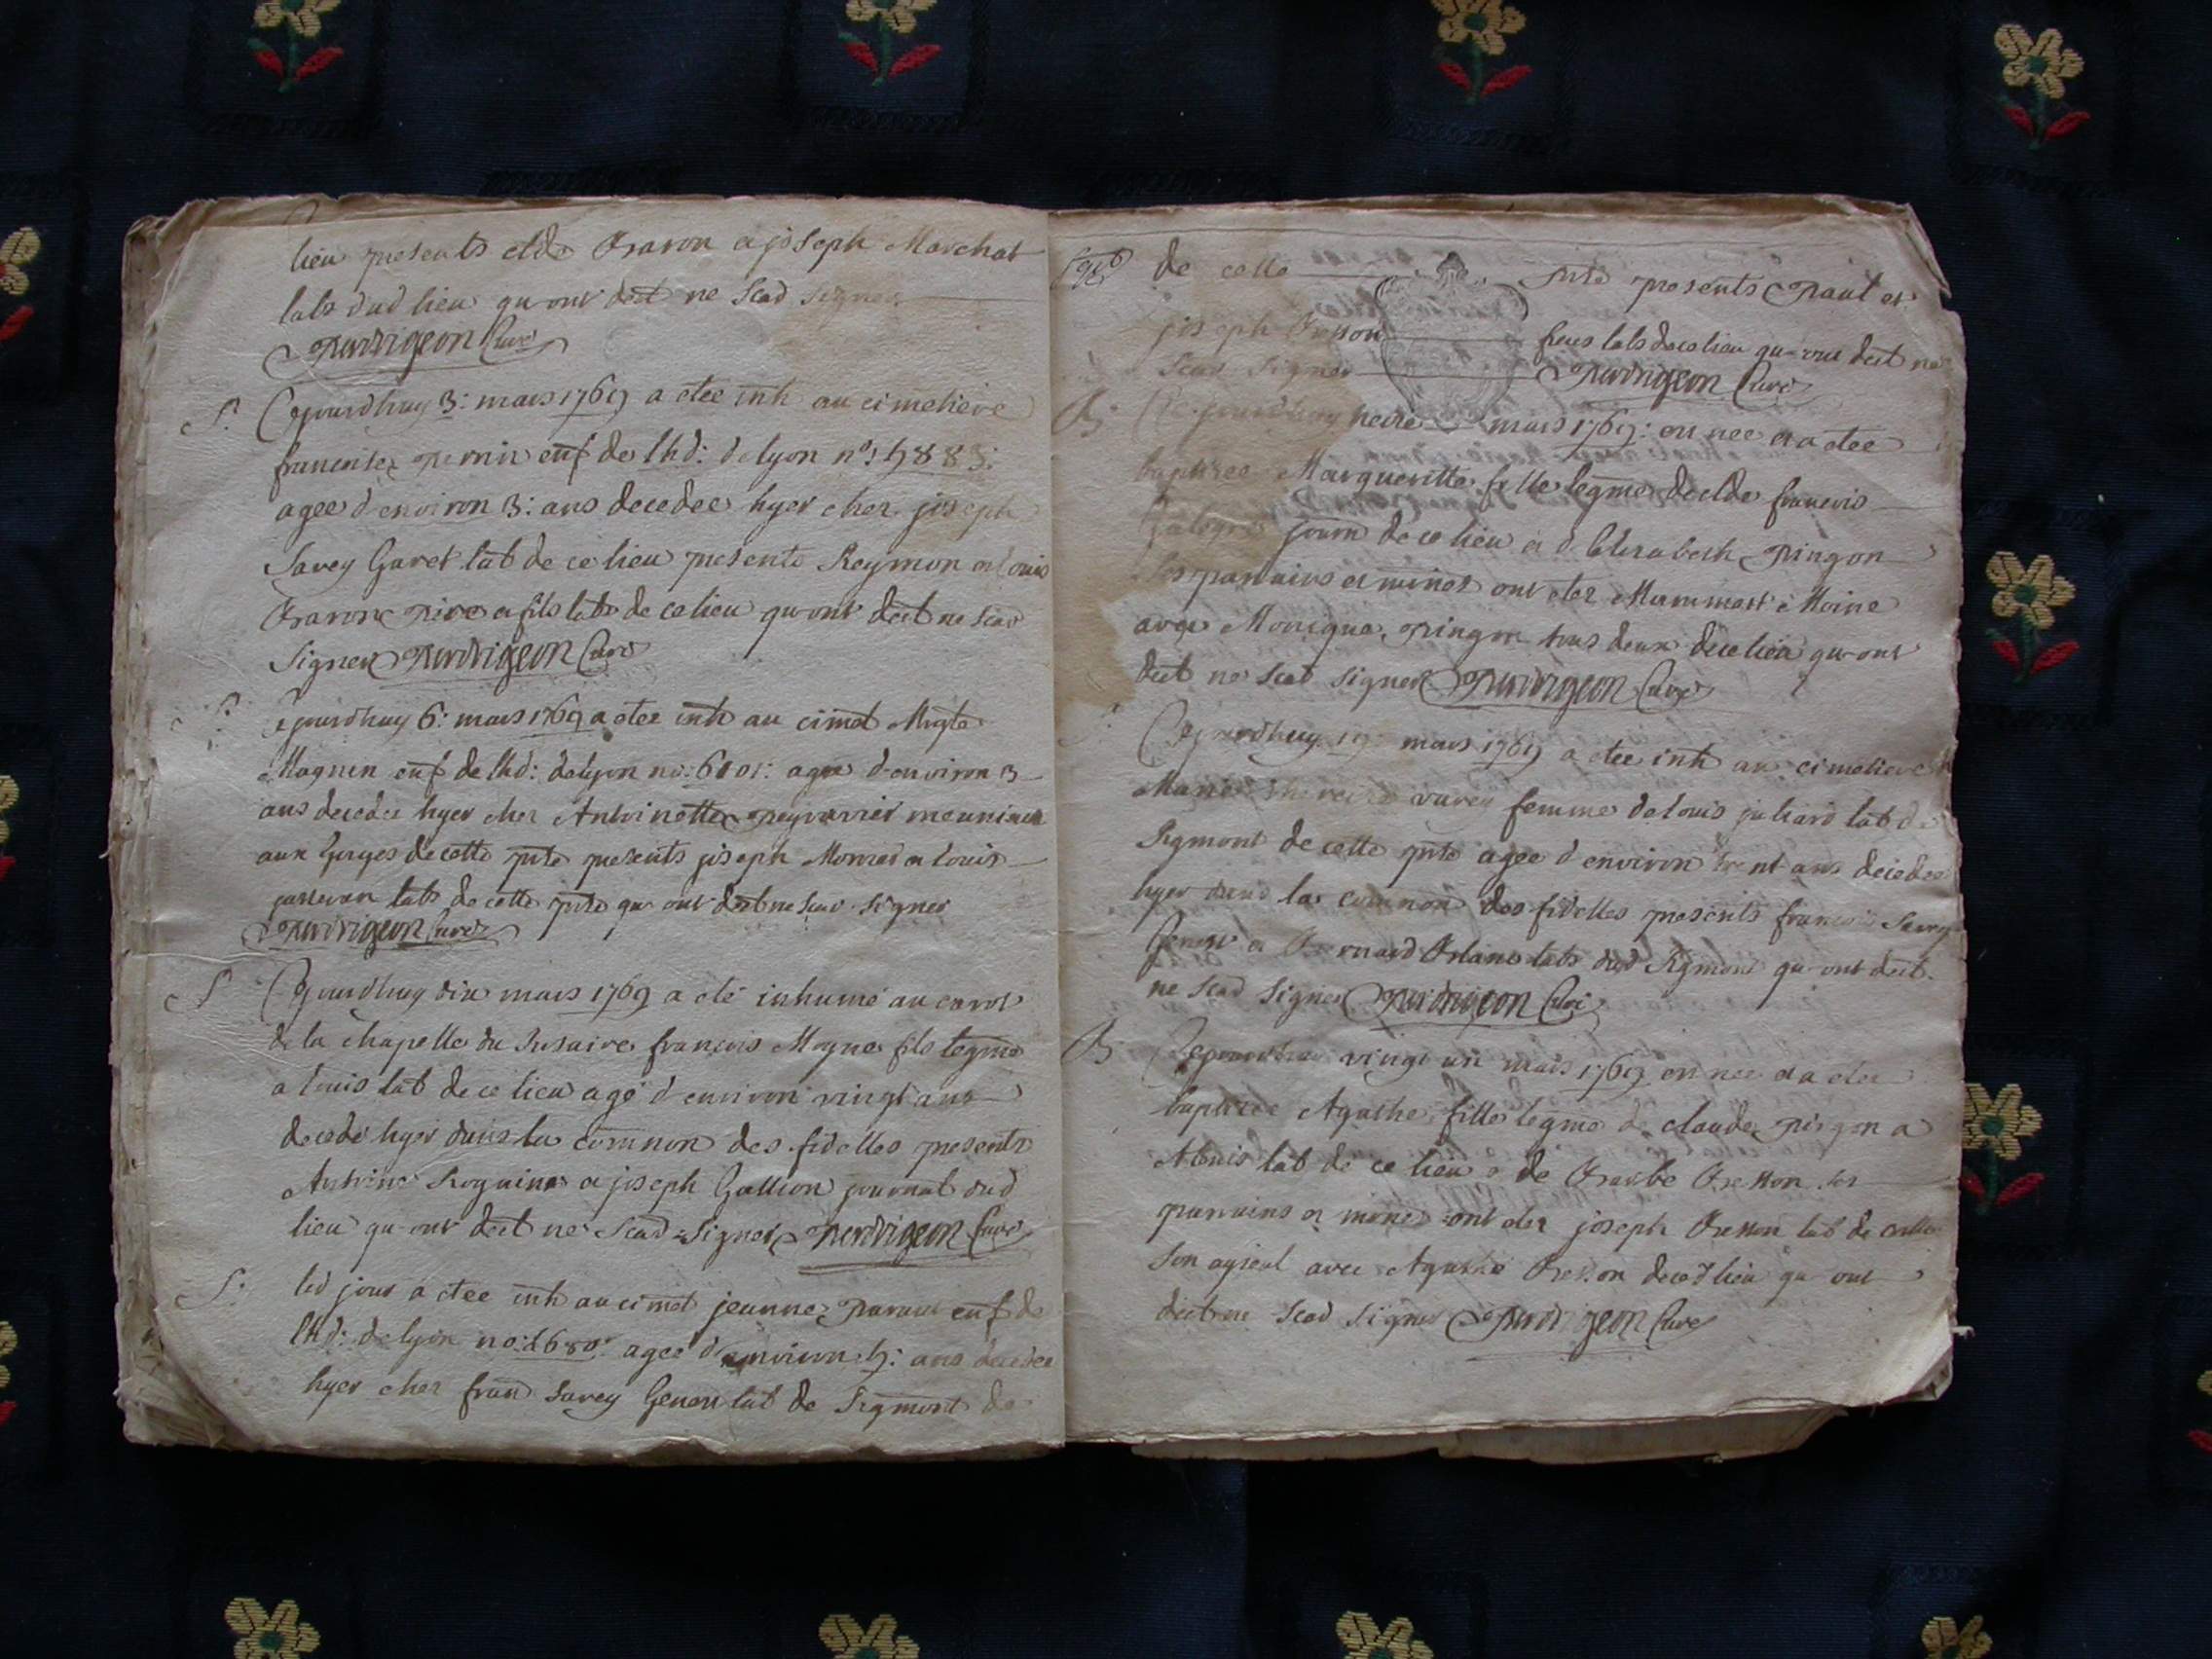 lieu presents clde Baron a joseph Marchat
labs dud lieu qu ont deit ne Scad signer
perdrigeon Curé
S. Cejourdhuy 3: mars 1769 a etee inh au cimetiere
enf de lhd: de lyon n°:
agee d environ 3: ans decedee hyer chez joseph
Savey Garet lab de ce lieu presents Reymon et Louis
pere a fils labs de ce lieu qu ont deit ne scad
Signer perdrigeon Curé
S. Cejourdhuy 6: mars 1769 a etee inh au cimet Mrgte
Magnin enf de lhd: de lyon no: agee d environ 3
ans decedee hyer chez Antoinette meuniere
aux Gorges de cette prse presents joseph a louis
labs de cette prse qu ont deit ne scad signer
perdrigeon Curé
S Cejourdhuy dix mars 1769 a eté inhumé au
de la chapelle du Rosaire françois Moyne fils legme
a louis lab de ce lieu agé d environ vingt ans
decedé hyer dans la common des fidelles presents
Antoine a joseph Gallion journal dud
lieu qu ont deit ne Scad signer perdrigeon Curé
S. led jour a etee inh au cimet jeanne enf de
lhd: de lyon no: agee d environ ans decedee
hyer chez franc Savey Genou lab de Sigmont de
de cette prse presents paul et
joseph Bresson freres labs de ce lieu qu ont deit ne
Scad Signer perdrigeon Curé
B. Cejourdhuy mars 1769: en nee et a etee
baptisee Margueritte fille legme de clde francois
journ de ce lieu et d Elisabeth pingon
les parrains et mines ont etez Mammert Moine
avec Monique pingon tous deux de ce lieu qu ont
deit ne scad signer perdrigeon Curé
S. Cejourdhuy 19: mars 1769 a etee inh au cimetiere
Marie femme de louis juliard lab de
Sigmont de cette prse agee d environ trent ans decedee
hyer dans la common des fidelles presents francois Savey
Genou et Bernard labs dud Sigmont qu ont deit
ne Scad Signer perdrigeon Curé
B Cejourdhuy vingt un mars 1769 en nee et a etee
baptisee Agathe fille legme de claude pingon a
lab de ce lieu e de Bresson les
parrains et mines ont etez joseph Bresson lab de
Son ayeul avec Agathe Bresson de ced lieu qu ont
deit ne Scad Signer perdrigeon Curé